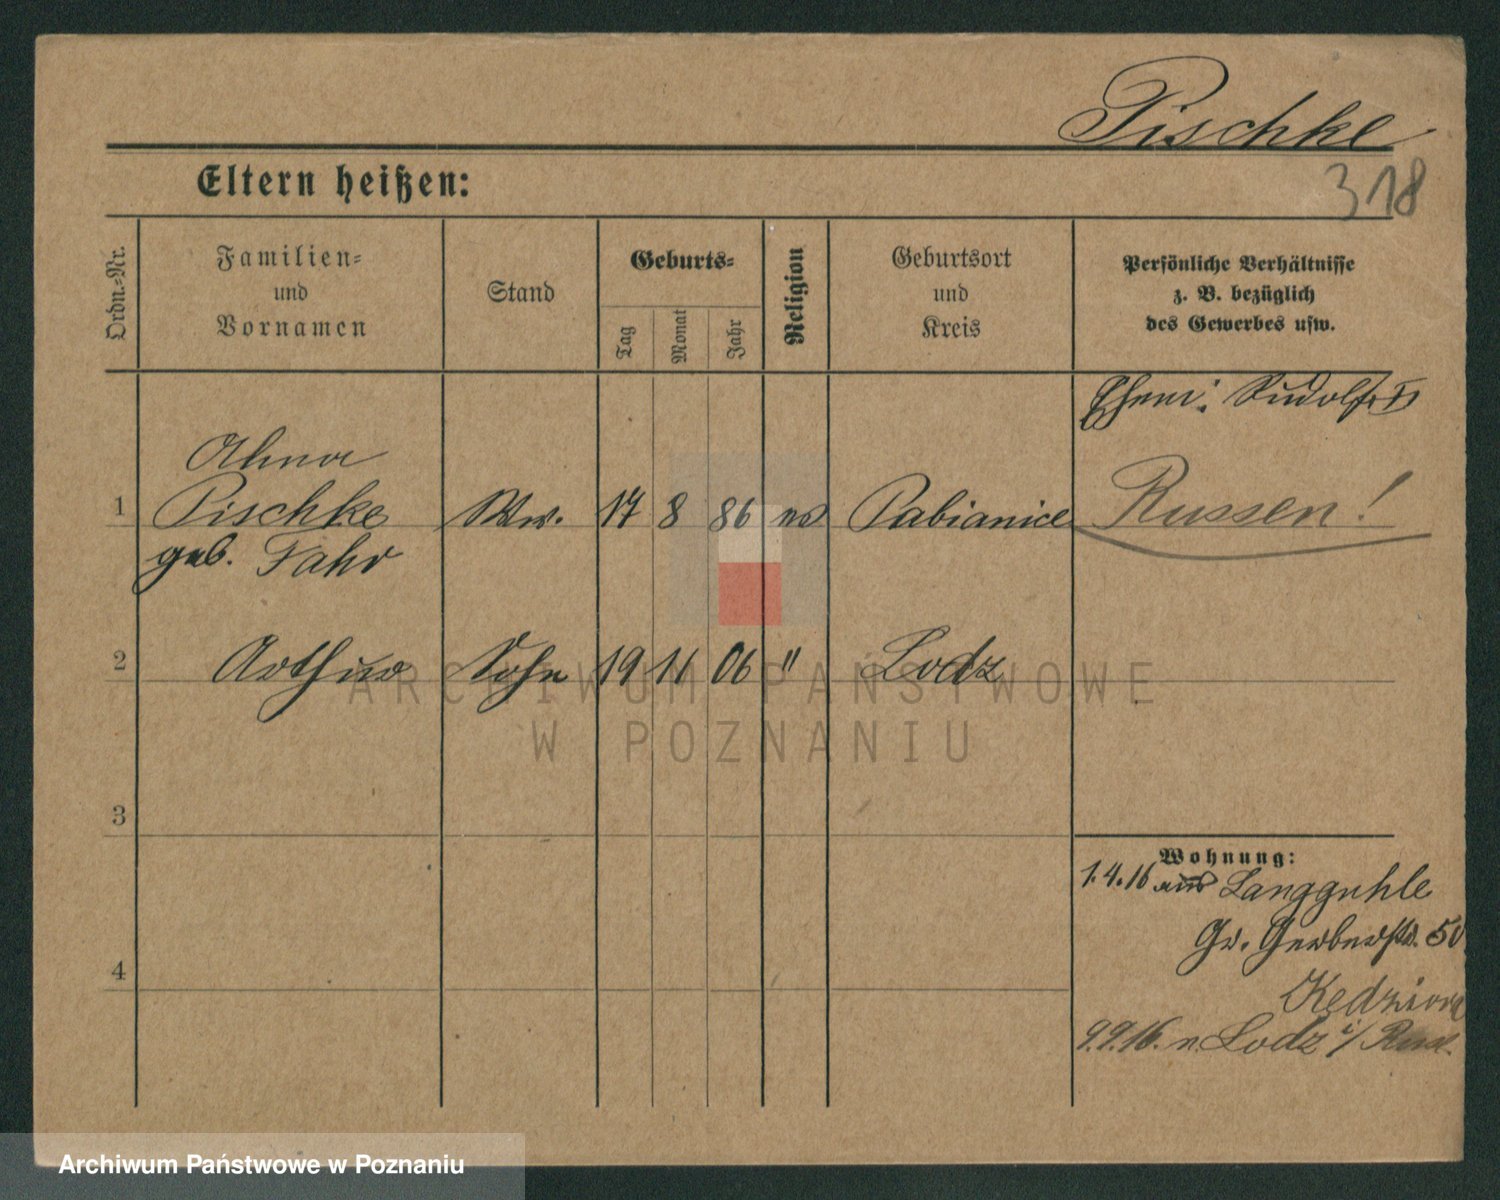 Pischke
318
Eltern heißen:
Ordn.-Nr.
Familien-
und
Vornamen
Stand
Geburts-
Tag
Monat
Jahr
Religion
Geburtsort
und
Kreis
Persönliche Verhältnisse
z. B. bezüglich
des Gewerbes usw.
Ehem: Rudolf
Alma
1 Pischke Ww. 17 8 86 Pabianice Russen!
geb. Fahr
2 Arthur Sohn 19 11 06 " Lodz
3
4
Wohnung:
1.4.16 aus Langguhle
Gr. Gerberstr. 50
Kedziora
9.9.16. n. Lodz i/
ARCHIWUM PAŃSTWOWE
W POZNANIU
Archiwum Państwowe w Poznaniu